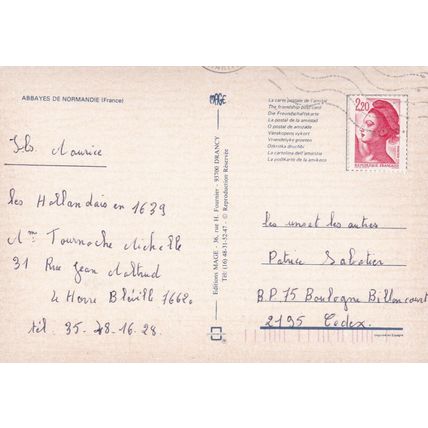 ABBAYES DE NORMANDIE (France)
Ile Maurice
les Hollandais en 1639
Mme Tournache Michelle
31 Rue Jean
Le Havre Bléville 76620
tél. 35-48-16-28.
MAGE
Editions MAGE - 36, rue H. Fournier - 93700 DRANCY
Tél: (16) 48-31-52-47 - © Reproduction Réservée
La carte postale de l'amitié
The friendship post card
Die Freundschaftskarte
La postal de la amistad
O postal de amizade
Vänskapens vykort
Vriendelijke groeten
La cartolina dell'amicizia
La poŝtkarto de la amikeco
2,20
RÉPUBLIQUE FRANÇAISE
les uns et les autres
Patrice Sabatier
B.P 75 Boulogne Billancourt
2195 Cedex.